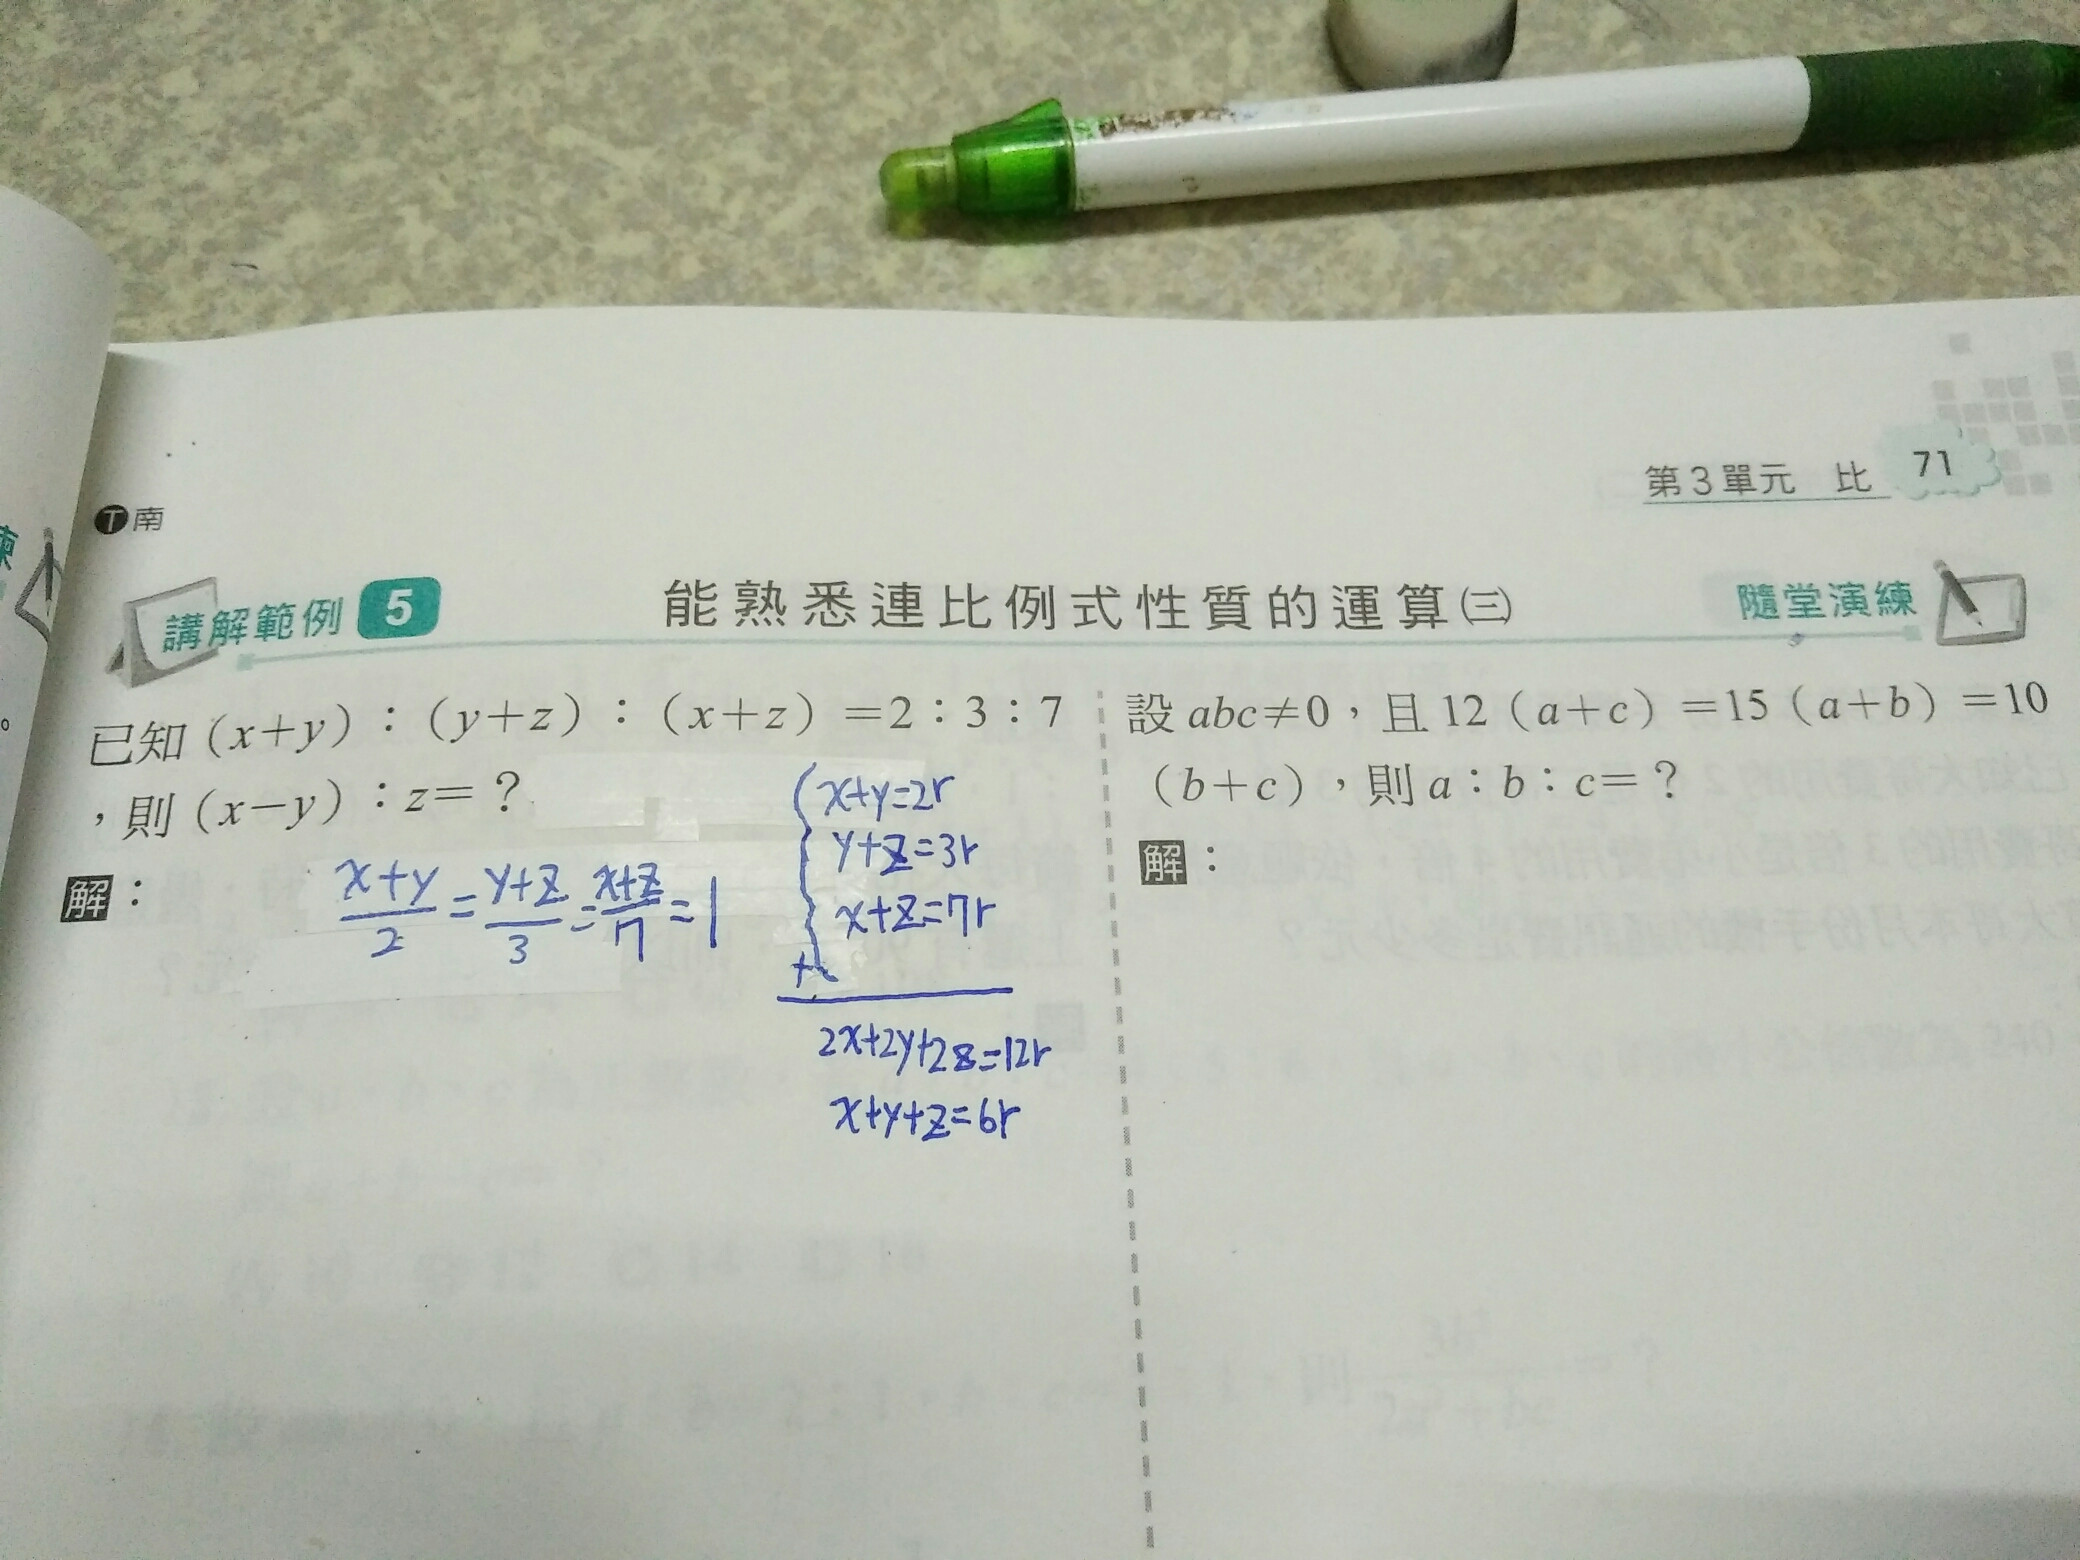 第3單元 比 71
T南
講解範例 5 能熟悉連比例式性質的運算㈢ 隨堂演練
已知(x+y):(y+z):(x+z)=2:3:7
,則(x-y):z=?
解:
x+y/2=y+z/3=x+z/7=1
x+y=2r
y+z=3r
x+z=7r
+
2x+2y+2z=12r
x+y+z=6r
設abc≠0,且12(a+c)=15(a+b)=10
(b+c),則a:b:c=?
解: